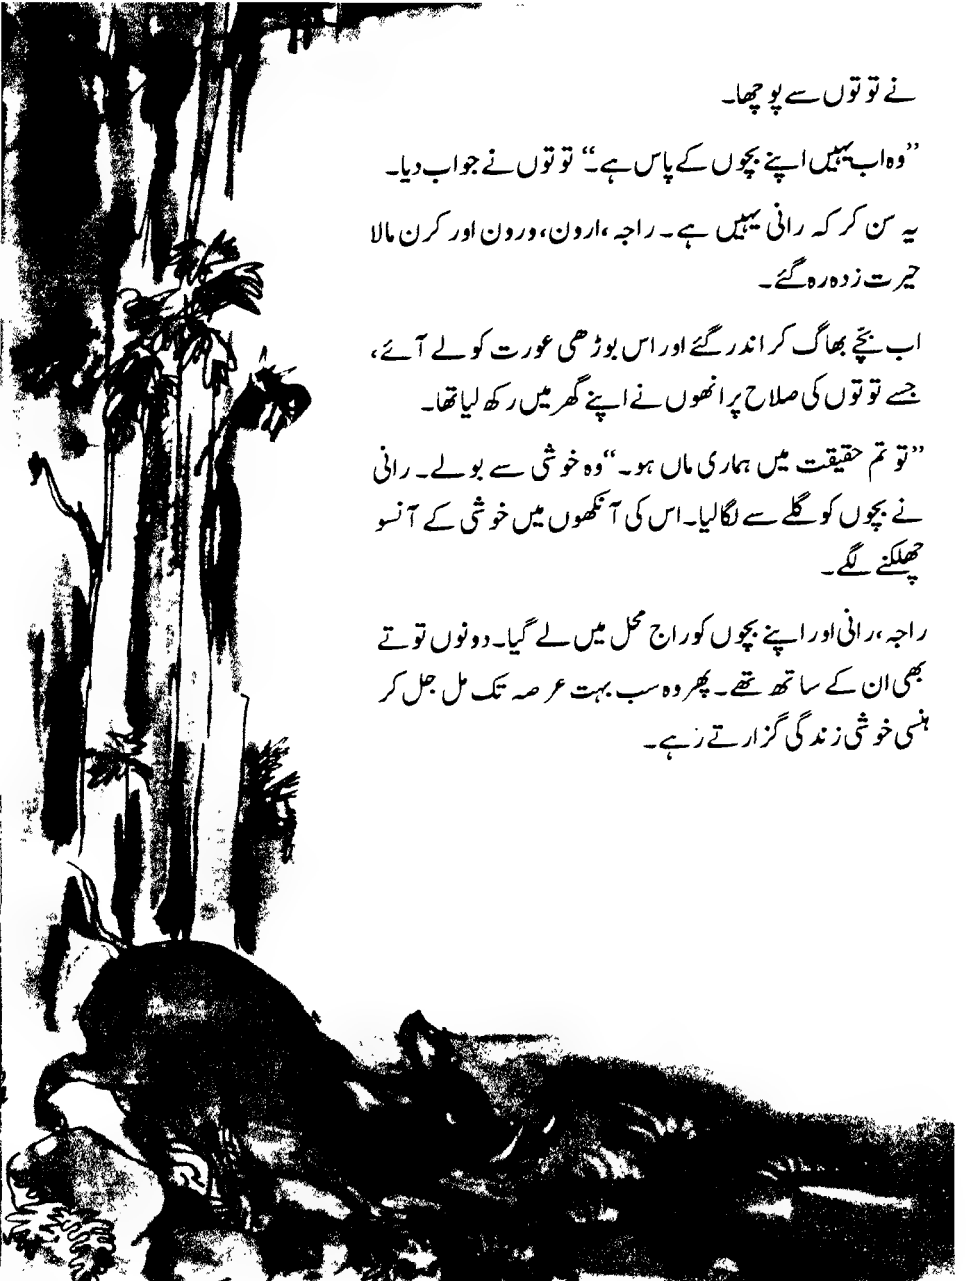 نے توتوں سے پوچھا۔
”وہ اب یہیں اپنے بچوں کے پاس ہے۔“ توتوں نے جواب دیا۔
یہ سن کر کہ رانی یہیں ہے۔ راجہ، ارون، ورون اور کرن مالا
حیرت زدہ رہ گئے۔
اب بچے بھاگ کر اندر گئے اور اس بوڑھی عورت کو لے آئے،
جسے توتوں کی صلاح پر انھوں نے اپنے گھر میں رکھ لیا تھا۔
”تو تم حقیقت میں ہماری ماں ہو۔“ وہ خوشی سے بولے۔ رانی
نے بچوں کو گلے سے لگا لیا۔ اس کی آنکھوں میں خوشی کے آنسو
چھلکنے لگے۔
راجہ، رانی اور اپنے بچوں کو راج محل میں لے گیا۔ دونوں توتے
بھی ان کے ساتھ تھے۔ پھر وہ سب بہت عرصہ تک مل جل کر
ہنسی خوشی زندگی گزارتے رہے۔